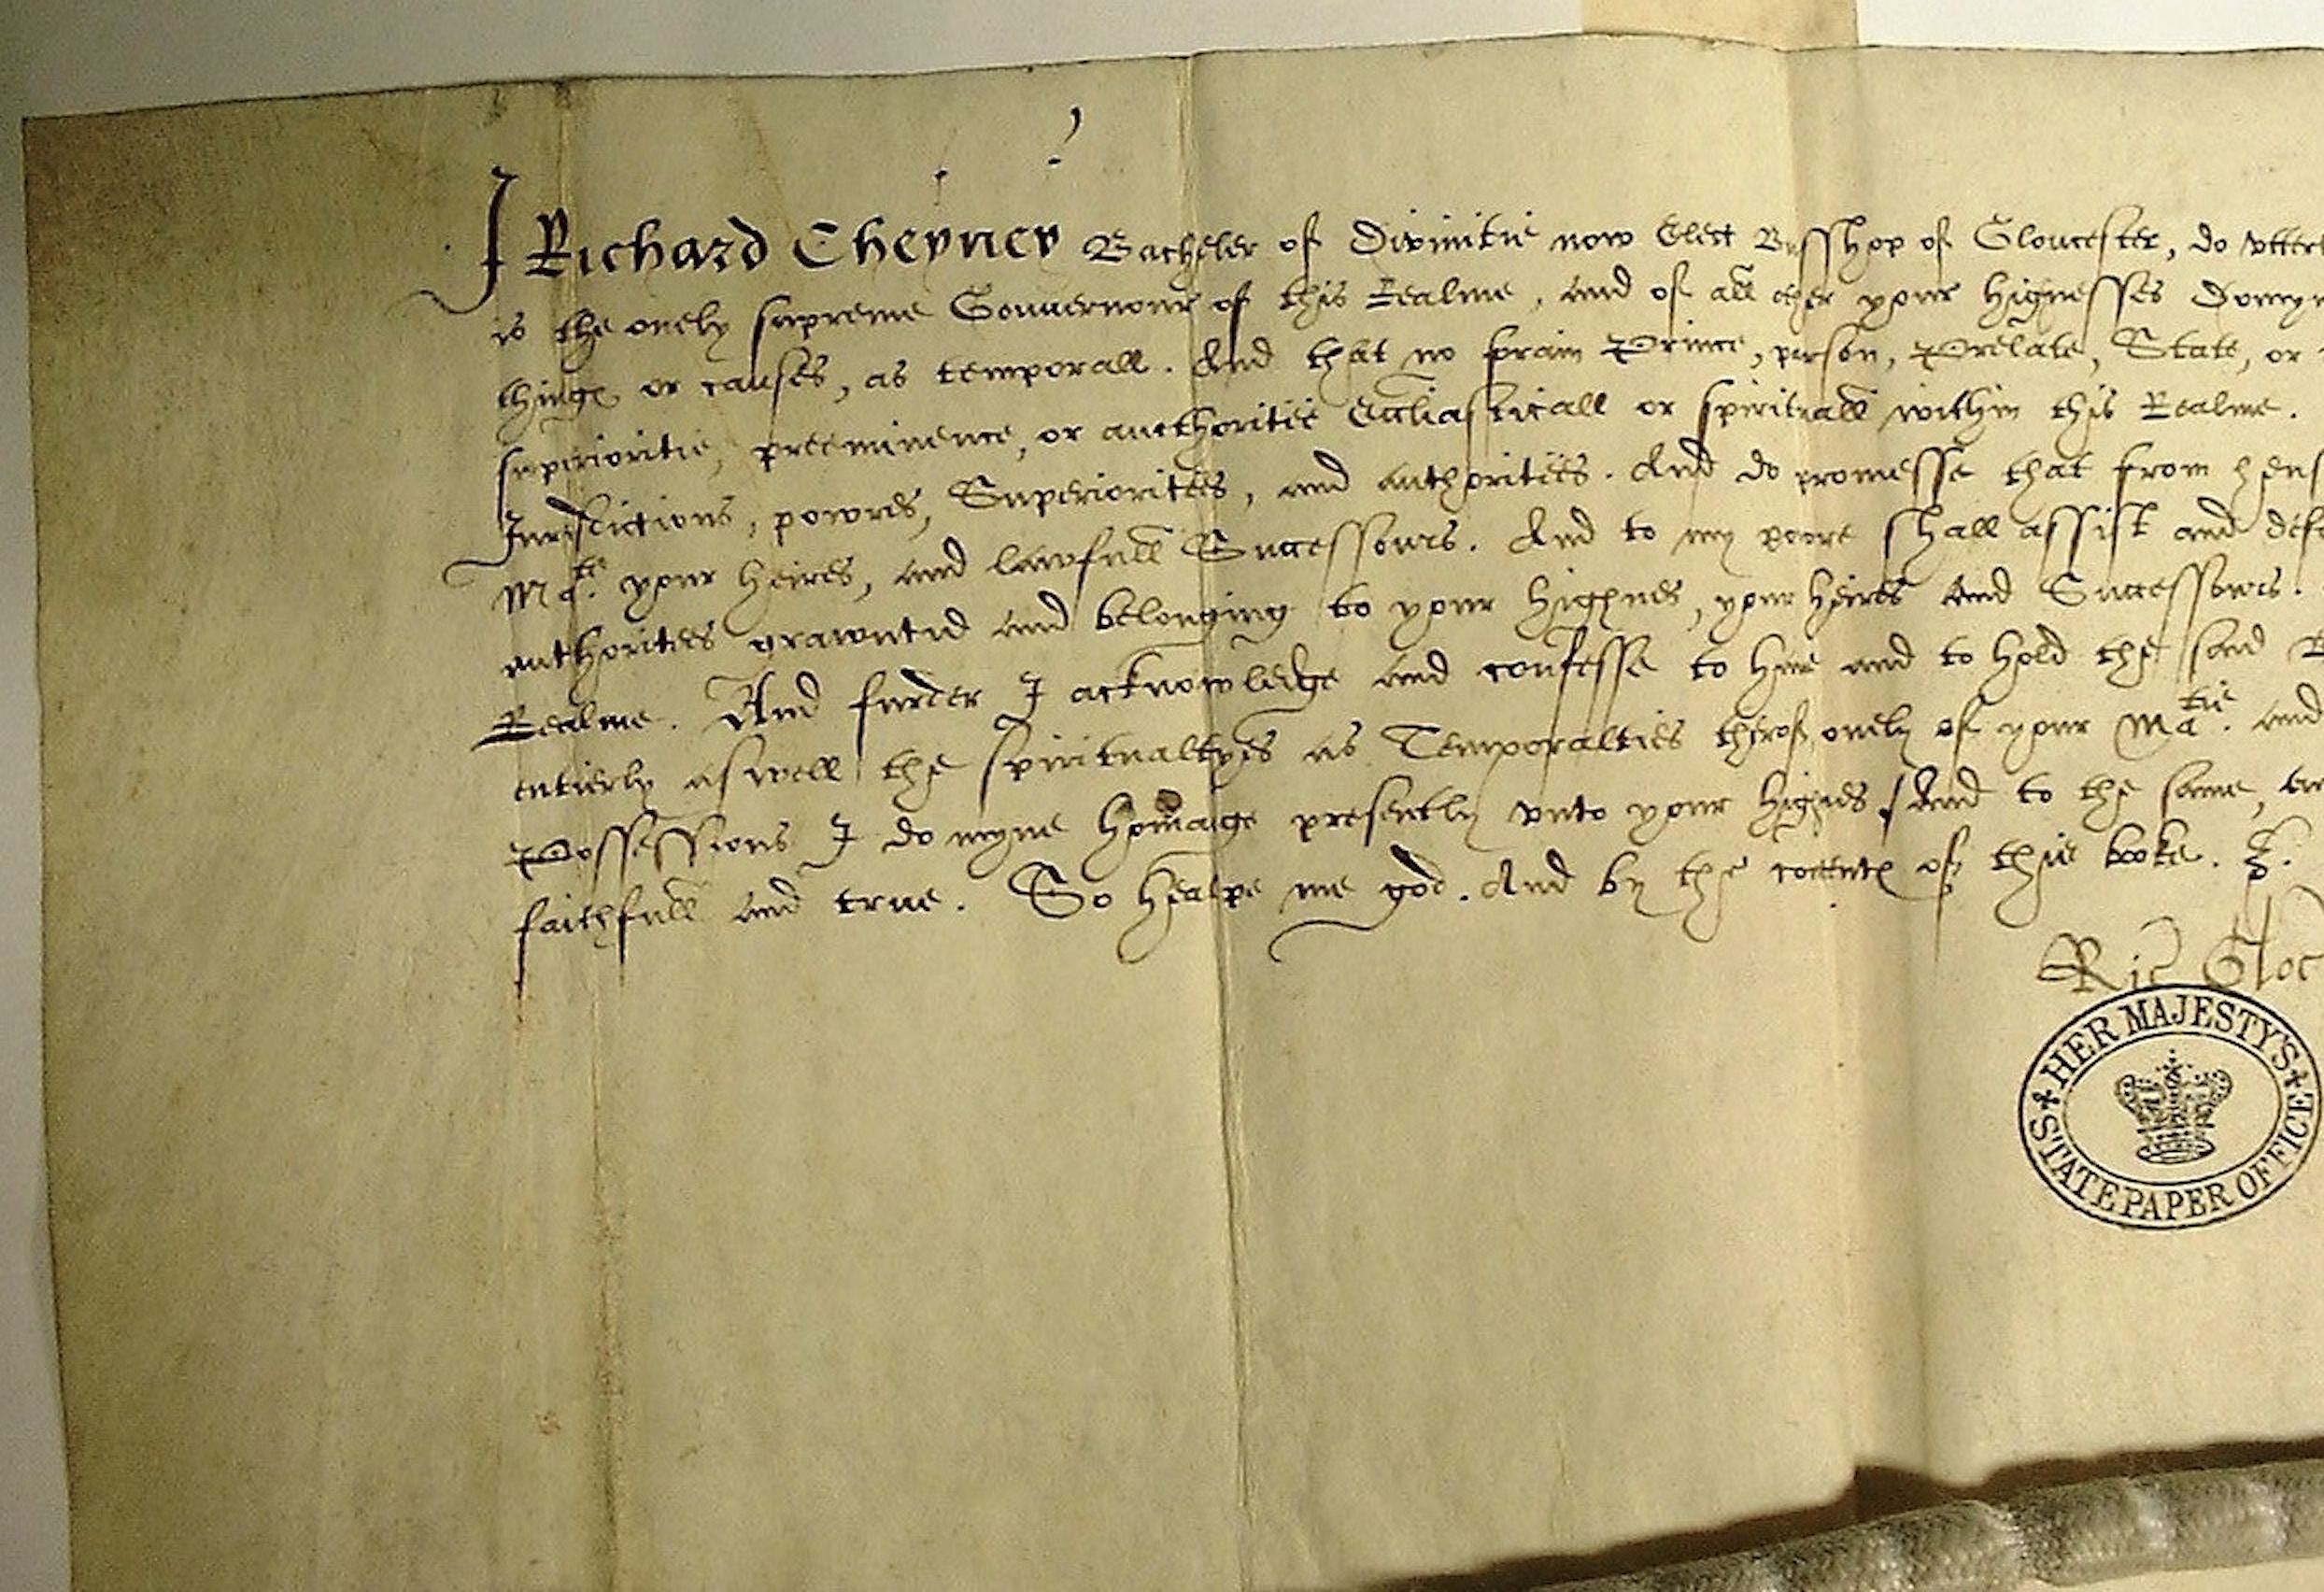 I Richard Cheyney Bacheler of Divinitie now Elect Busshop of Gloucester, do vtter
is the onely supreme Gouuernour of this Realme, and of all other your highnesses Domy
thinges or causes, as temporall. And that no forain Prince, person, Prelate, State, or
superioritie, preeminence, or aucthoritie Ecclesiasticall or spirituall within this Realme.
Jurisdictions, powres, Superiorities, and authorities. And do promesse that from hens
Ma.te your heires, and lawfull Successours. And to my powre shall assist and defe
authorities grawntid and belonging to your highnes, your heires and Successours.
Realme. And furder I acknowledge and confesse to haue and to hold the said B
entierly aswell the spiritualtyes as Temporalties therof, onely of your Ma.tie and
Possessions I do myne homaige presently vnto your highnes. And to the same,
faithfull and true. So healpe me god. And by the contentes of this booke.
Ric Gloc
HER MAJESTY'S
STATE PAPER OFFICE